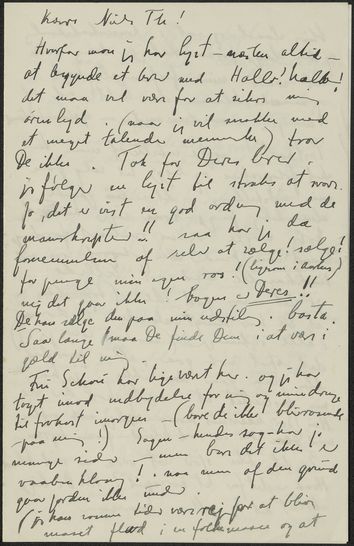 Kære Niels Th!
Hvorfor mon jeg har lyst – næsten altid –
at begynde et brev med Hallo! hallo!
det maa vel være for at sikre mig
ørenlyd. (naar jeg vil snakke med
et meget talende menneske) tror
De ikke. Tak for Deres brev.
jeg følger en lyst til straks at svare.
Jo, det er vist en god ordning med de
manuskripter!! saa har jeg da
fornemmelsen af selv at sælge! sælge!
for penge min egen ros! (ligesom i
nej det gaar ikke! bogen er Deres!!
De kan sælge den paa min udstilling. basta
Saa længe maa De finde Dem i at være i
gæld til mig.
Frk Schou har lige været her. og jeg har
taget imod indbydelse for mig og
til frokost imorgen – (bare de ikke
– paa mig!) Sagen – hendes sag har jo
mange sider – men bare det ikke er
! naa men af den grund
gaar jorden ikke under.
(Jeg kan komme for at blive
i en og at